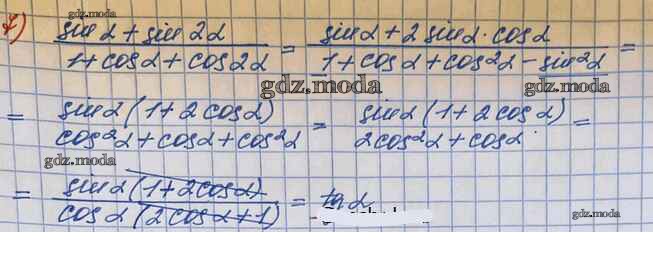 gdz.moda
7) sin α + sin 2α / 1 + cos α + cos 2α = sin α + 2 sin α · cos α / 1 + cos α + cos²α − sin²α =
gdz.moda
= sin α (1 + 2 cos α) / cos²α + cos α + cos²α = sin α (1 + 2 cos α) / 2cos²α + cos α =
gdz.moda
gdz.moda
= sin α (1 + 2 cos α) / cos α (2 cos α + 1) = tg α
gdz.moda